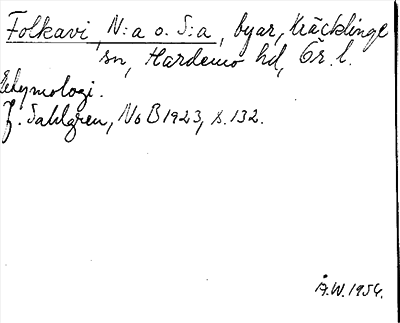 Folkavi, N:a o. S:a, byar, Kräcklinge
sn, Hardemo hd, Ör. l.
Etymologi.
J. Sahlgren, NoB 1923, s. 132.
Å.W. 1954.